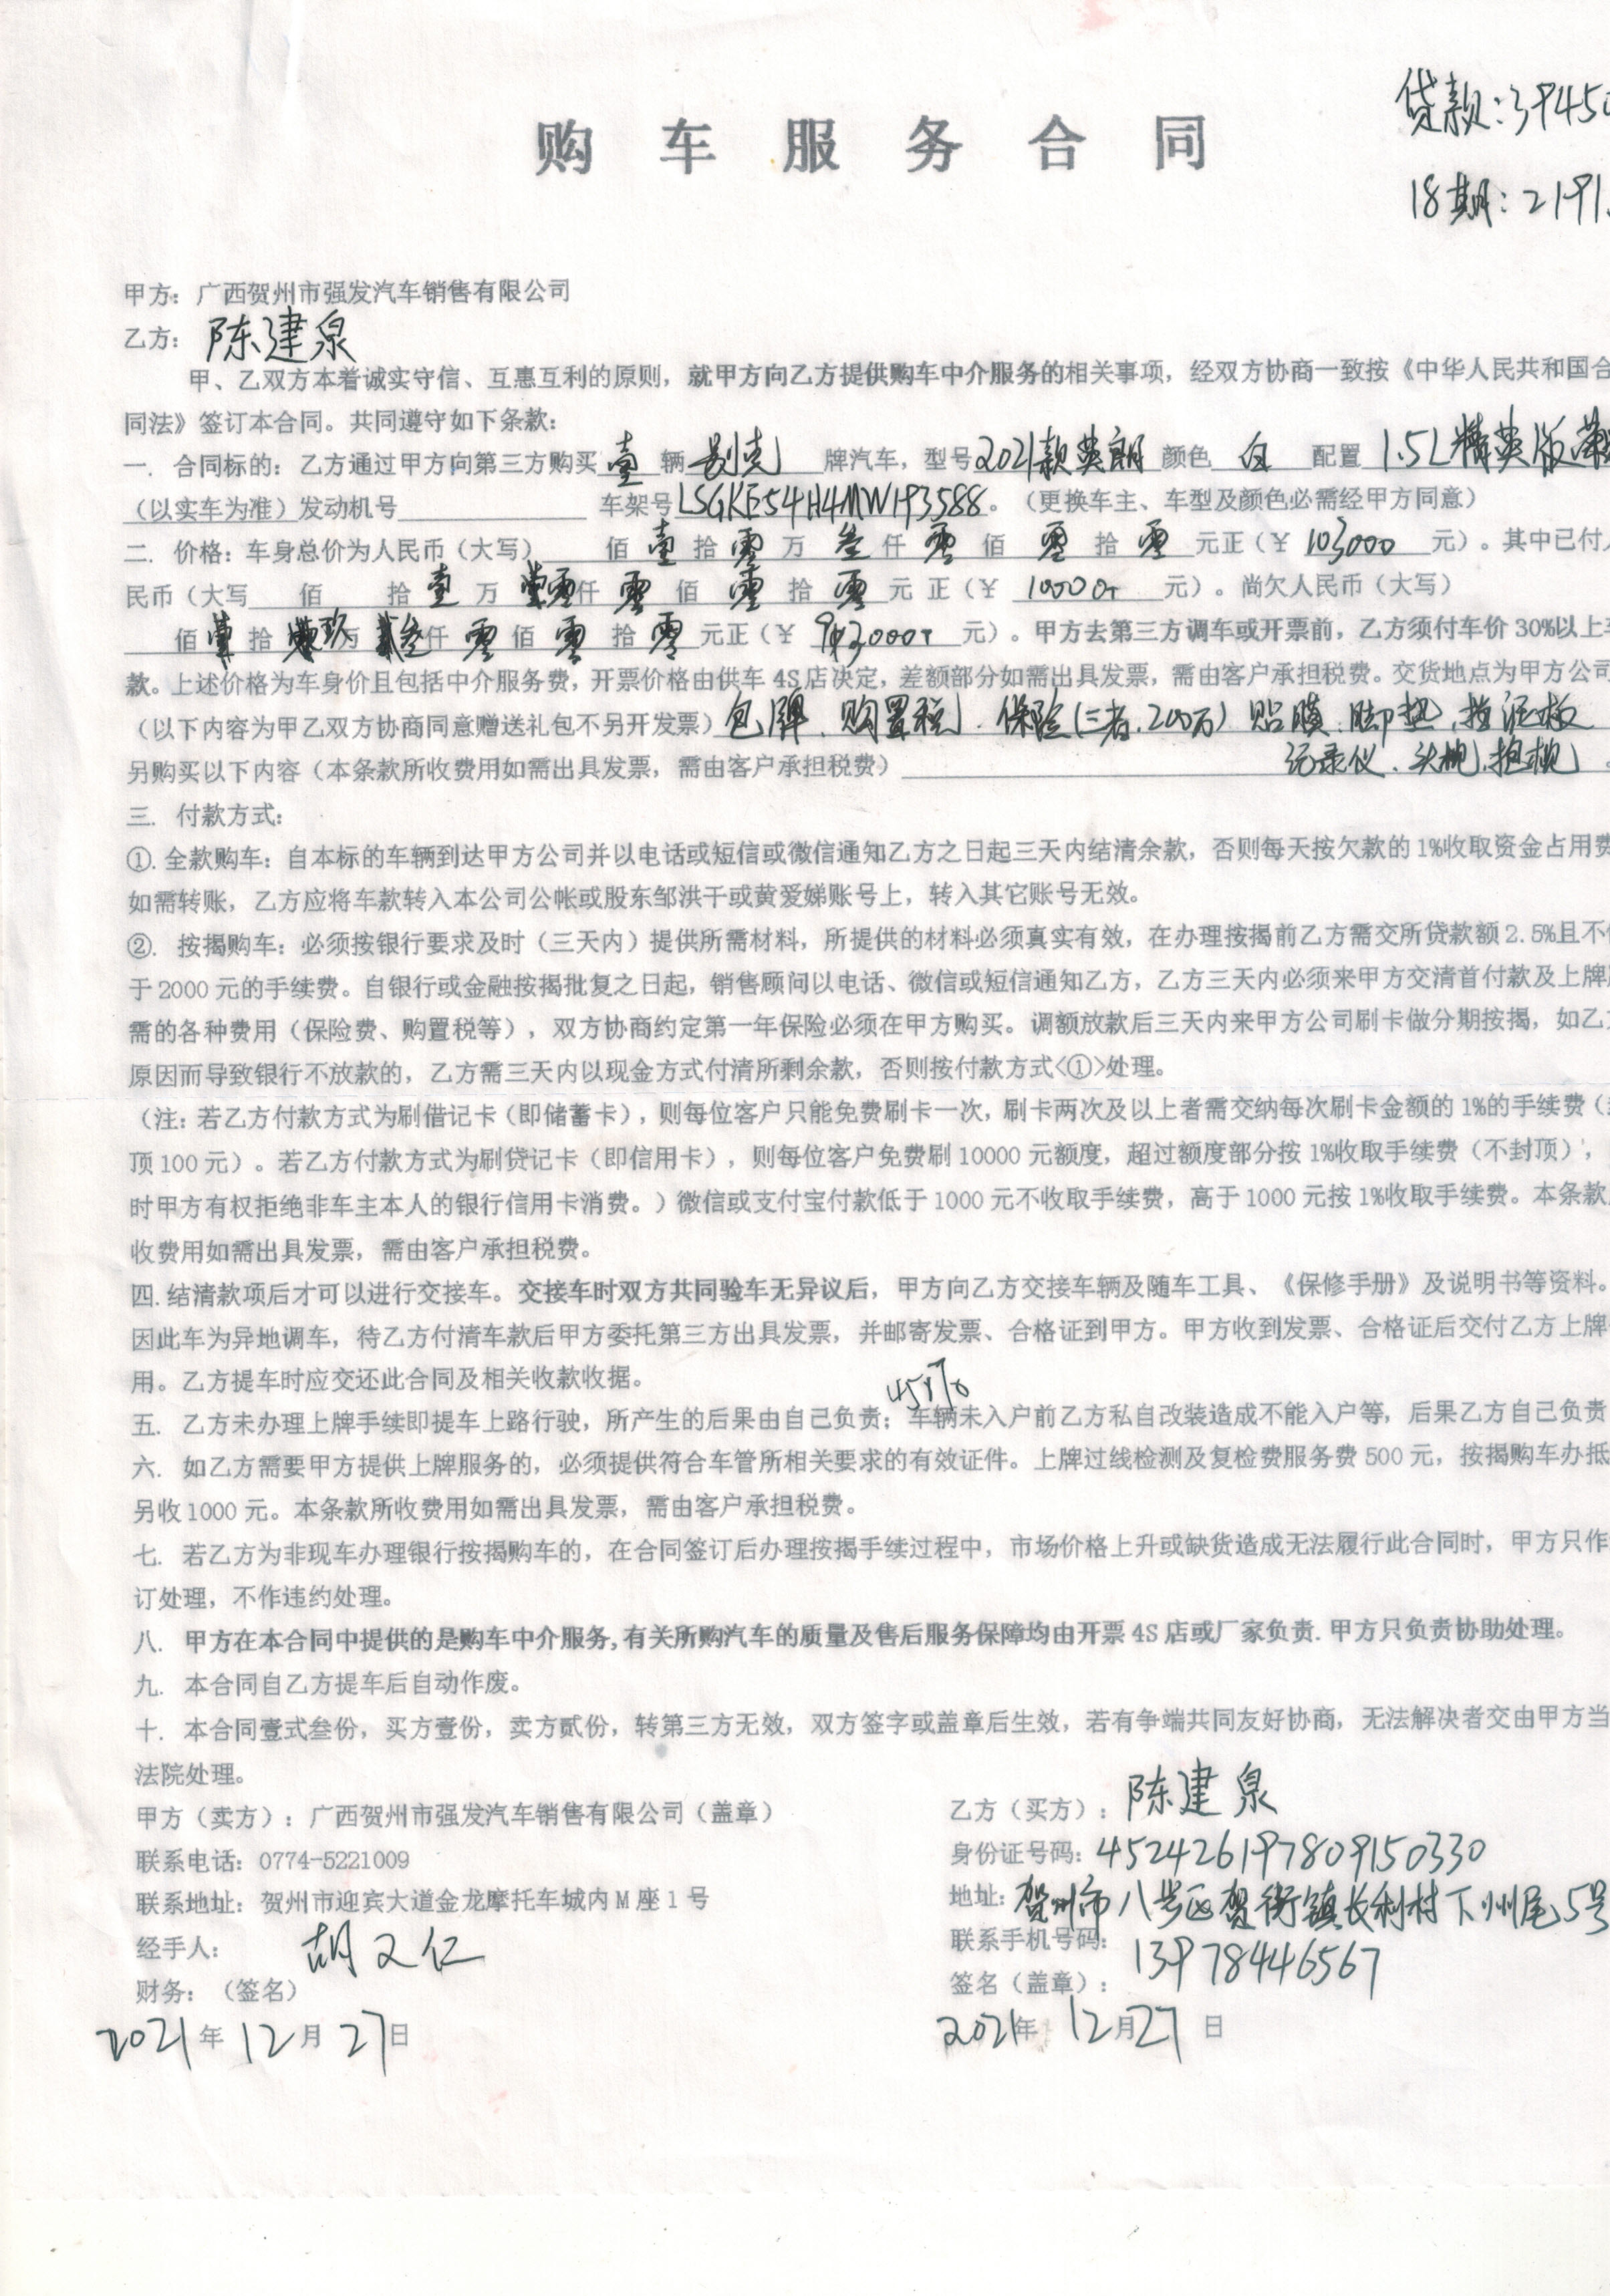 贷款:39450
18期:2191.
购车服务合同
甲方：广西贺州市强发汽车销售有限公司
乙方：陈建泉
甲、乙双方本着诚实守信、互惠互利的原则，就甲方向乙方提供购车中介服务的相关事项，经双方协商一致按《中华人民共和国合
同法》签订本合同。共同遵守如下条款：
一. 合同标的：乙方通过甲方向第三方购买 壹 辆 别克 牌汽车，型号 2021款英朗 颜色 白 配置 1.5L精英版
（以实车为准）发动机号 车架号 LSGKE54H4MW193588。（更换车主、车型及颜色必需经甲方同意）
二. 价格：车身总价为人民币（大写） 佰 壹 拾 零 万 叁 仟 零 佰 零 拾 零 元正（￥ 103000 元）。其中已付人
民币（大写 佰 拾 壹 万 零 仟 零 佰 零 拾 零 元 正（￥ 10000 元）。尚欠人民币（大写）
佰 拾 玖 万 叁 仟 零 佰 零 拾 零 元正（￥ 93000 元）。甲方去第三方调车或开票前，乙方须付车价 30%以上车
款。上述价格为车身价且包括中介服务费，开票价格由供车 4S 店决定，差额部分如需出具发票，需由客户承担税费。交货地点为甲方公司
（以下内容为甲乙双方协商同意赠送礼包不另开发票）包牌、购置税、保险(三者,200万) 贴膜、脚垫、挡泥板
另购买以下内容（本条款所收费用如需出具发票，需由客户承担税费） 记录仪、头枕、抱枕。
三. 付款方式：
①. 全款购车：自本标的车辆到达甲方公司并以电话或短信或微信通知乙方之日起三天内结清余款，否则每天按欠款的 1%收取资金占用费
如需转账，乙方应将车款转入本公司公帐或股东邹洪干或黄爱娣账号上，转入其它账号无效。
②. 按揭购车：必须按银行要求及时（三天内）提供所需材料，所提供的材料必须真实有效，在办理按揭前乙方需交所贷款额 2.5%且不低
于 2000 元的手续费。自银行或金融按揭批复之日起，销售顾问以电话、微信或短信通知乙方，乙方三天内必须来甲方交清首付款及上牌所
需的各种费用（保险费、购置税等），双方协商约定第一年保险必须在甲方购买。调额放款后三天内来甲方公司刷卡做分期按揭，如乙方
原因而导致银行不放款的，乙方需三天内以现金方式付清所剩余款，否则按付款方式<①>处理。
（注：若乙方付款方式为刷借记卡（即储蓄卡），则每位客户只能免费刷卡一次，刷卡两次及以上者需交纳每次刷卡金额的 1%的手续费（封
顶 100 元）。若乙方付款方式为刷贷记卡（即信用卡），则每位客户免费刷 10000 元额度，超过额度部分按 1%收取手续费（不封顶），
时甲方有权拒绝非车主本人的银行信用卡消费。）微信或支付宝付款低于 1000 元不收取手续费，高于 1000 元按 1%收取手续费。本条款
收费用如需出具发票，需由客户承担税费。
四. 结清款项后才可以进行交接车。交接车时双方共同验车无异议后，甲方向乙方交接车辆及随车工具、《保修手册》及说明书等资料。
因此车为异地调车，待乙方付清车款后甲方委托第三方出具发票，并邮寄发票、合格证到甲方。甲方收到发票、合格证后交付乙方上牌
用。乙方提车时应交还此合同及相关收款收据。
五. 乙方未办理上牌手续即提车上路行驶，所产生的后果由自己负责；车辆未入户前乙方私自改装造成不能入户等，后果乙方自己负责
六. 如乙方需要甲方提供上牌服务的，必须提供符合车管所相关要求的有效证件。上牌过线检测及复检费服务费 500 元，按揭购车办抵
另收 1000 元。本条款所收费用如需出具发票，需由客户承担税费。
七. 若乙方为非现车办理银行按揭购车的，在合同签订后办理按揭手续过程中，市场价格上升或缺货造成无法履行此合同时，甲方只作
订处理，不作违约处理。
八. 甲方在本合同中提供的是购车中介服务,有关所购汽车的质量及售后服务保障均由开票 4S 店或厂家负责.甲方只负责协助处理。
九. 本合同自乙方提车后自动作废。
十. 本合同壹式叁份，买方壹份，卖方贰份，转第三方无效，双方签字或盖章后生效，若有争端共同友好协商，无法解决者交由甲方当
法院处理。
甲方（卖方）：广西贺州市强发汽车销售有限公司（盖章）
联系电话：0774-5221009
联系地址：贺州市迎宾大道金龙摩托车城内 M 座 1 号
经手人： 胡文仁
财务：（签名）
2021 年 12 月 27 日
乙方（买方）：陈建泉
身份证号码：452426197809150330
地址：贺州市八步区贺街镇长利村下州尾5号
联系手机号码：13978446567
签名（盖章）：
2021 年 12 月 27 日